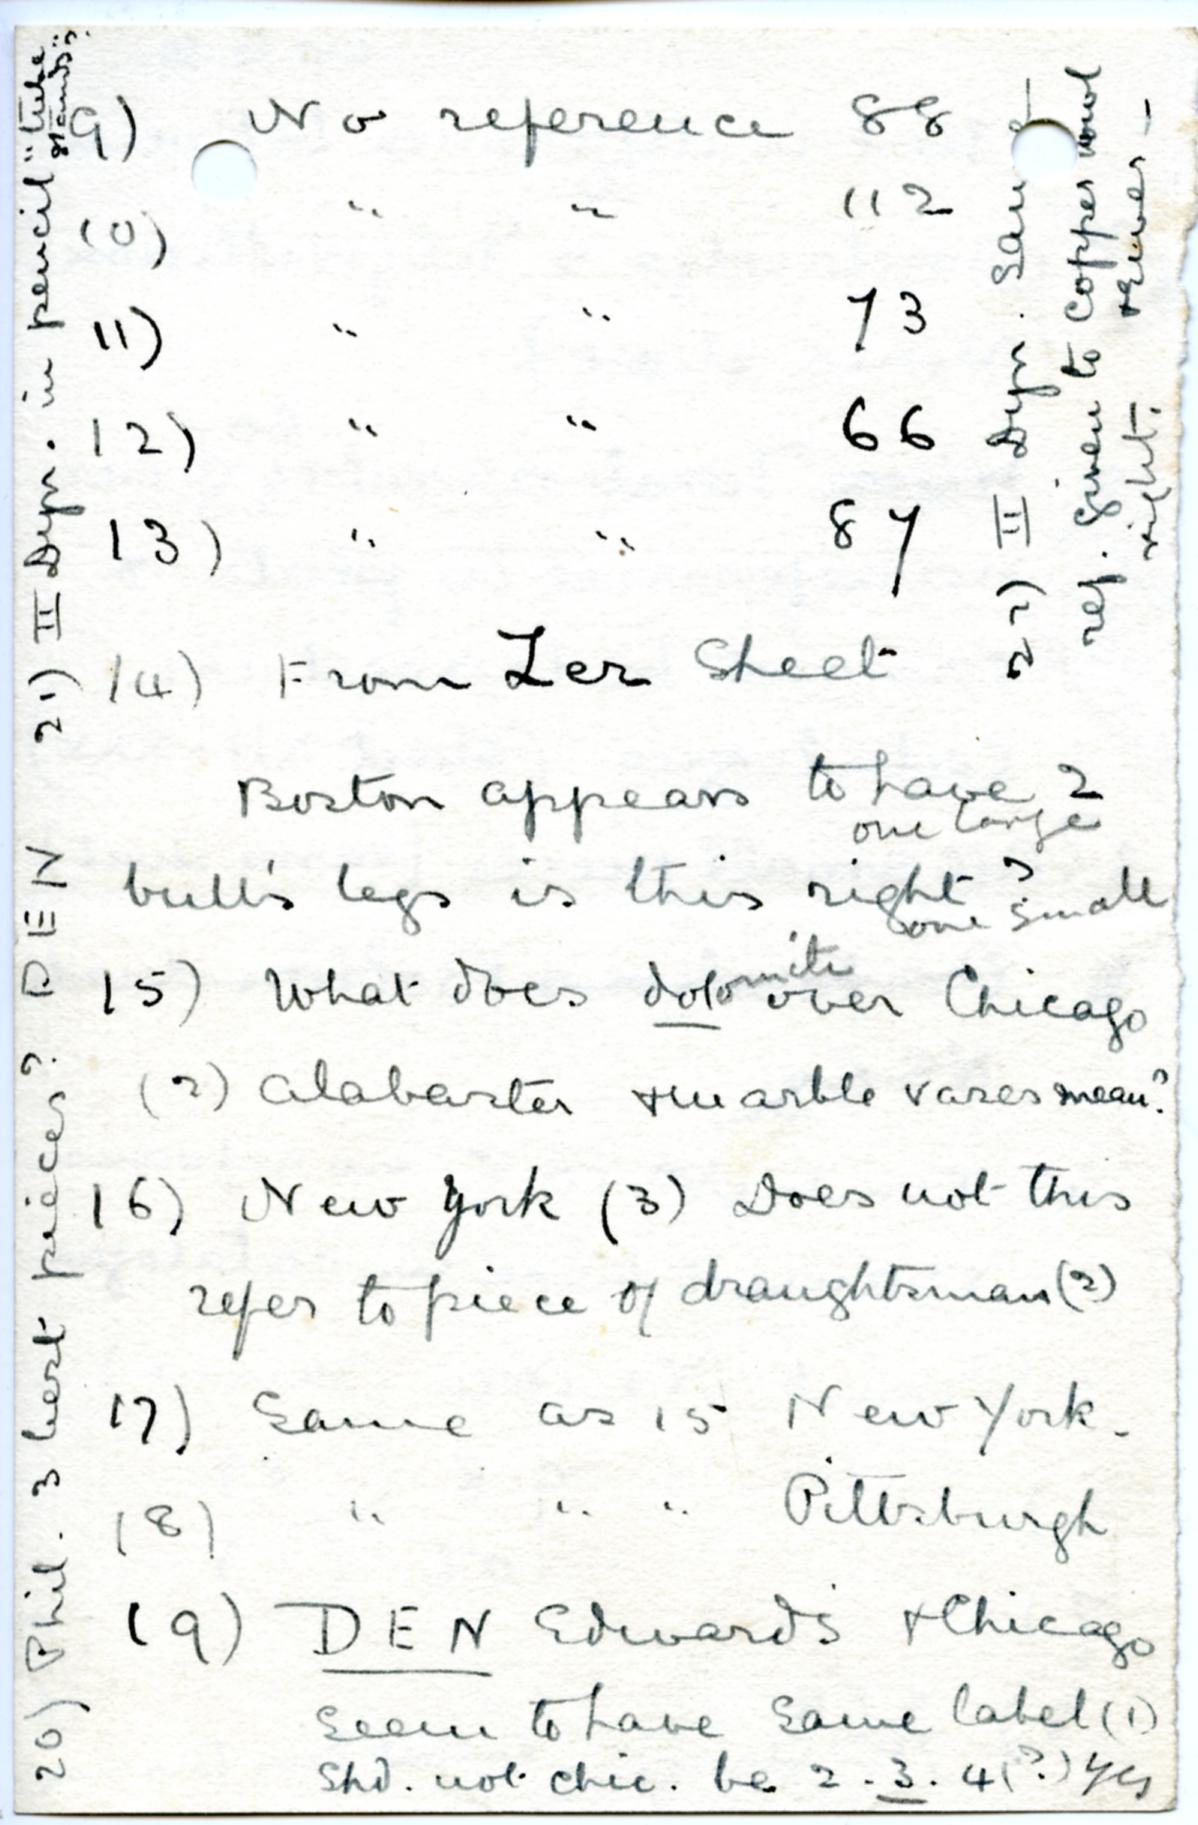 9) No reference 88
10) " " 112
11) " " 73
12) " " 66
13) " " 87
14) From Zer Sheet
Boston appears to have 2
one large
bull's legs is this right?
one small
15) What does dolomite over Chicago
(2) alabaster + marble vases mean?
16) New York (3) Does not this
refer to piece of draughtsman (2)
17) Same as 15 New York.
18) " " " Pittsburgh
19) DEN Edwards + Chicago
seem to have same label (1)
shd. not chic. be 2.3.4(?) Yes
20) Phil. 3 best pieces? DEN
21) II Dyn. in pencil "tube
stands"?
22) II Dyn.
ref. given to copper
right.